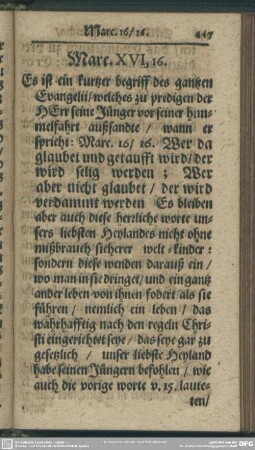 Marc. 16/ 16.
447
Marc. XVI, 16.
Es ist ein kurtzer begriff des gantzen
Evangelii/ welches zu predigen der
HErr seine Jünger vor seiner him-
melfahrt außsandte/ wann er
spricht: Marc. 16/ 16. Wer da
glaubet und getaufft wird/ der
wird selig werden; Wer
aber nicht glaubet/ der wird
verdammt werden Es bleiben
aber auch diese herrliche worte un-
sers liebsten Heylandes nicht ohne
mißbrauch sicherer welt-kinder:
sondern diese wenden darauß ein/
wo man in sie dringet/ und ein gantz
ander leben von ihnen fodert/ als sie
führen/ nemlich ein leben/ das
wahrhafftig nach den regeln Chri-
sti eingerichtet seye/ das seye gar zu
gesetzlich/ unser liebste Heyland
habe seinen Jüngern befohlen/ wie
auch die vorige worte v. 15. laute-
ten/